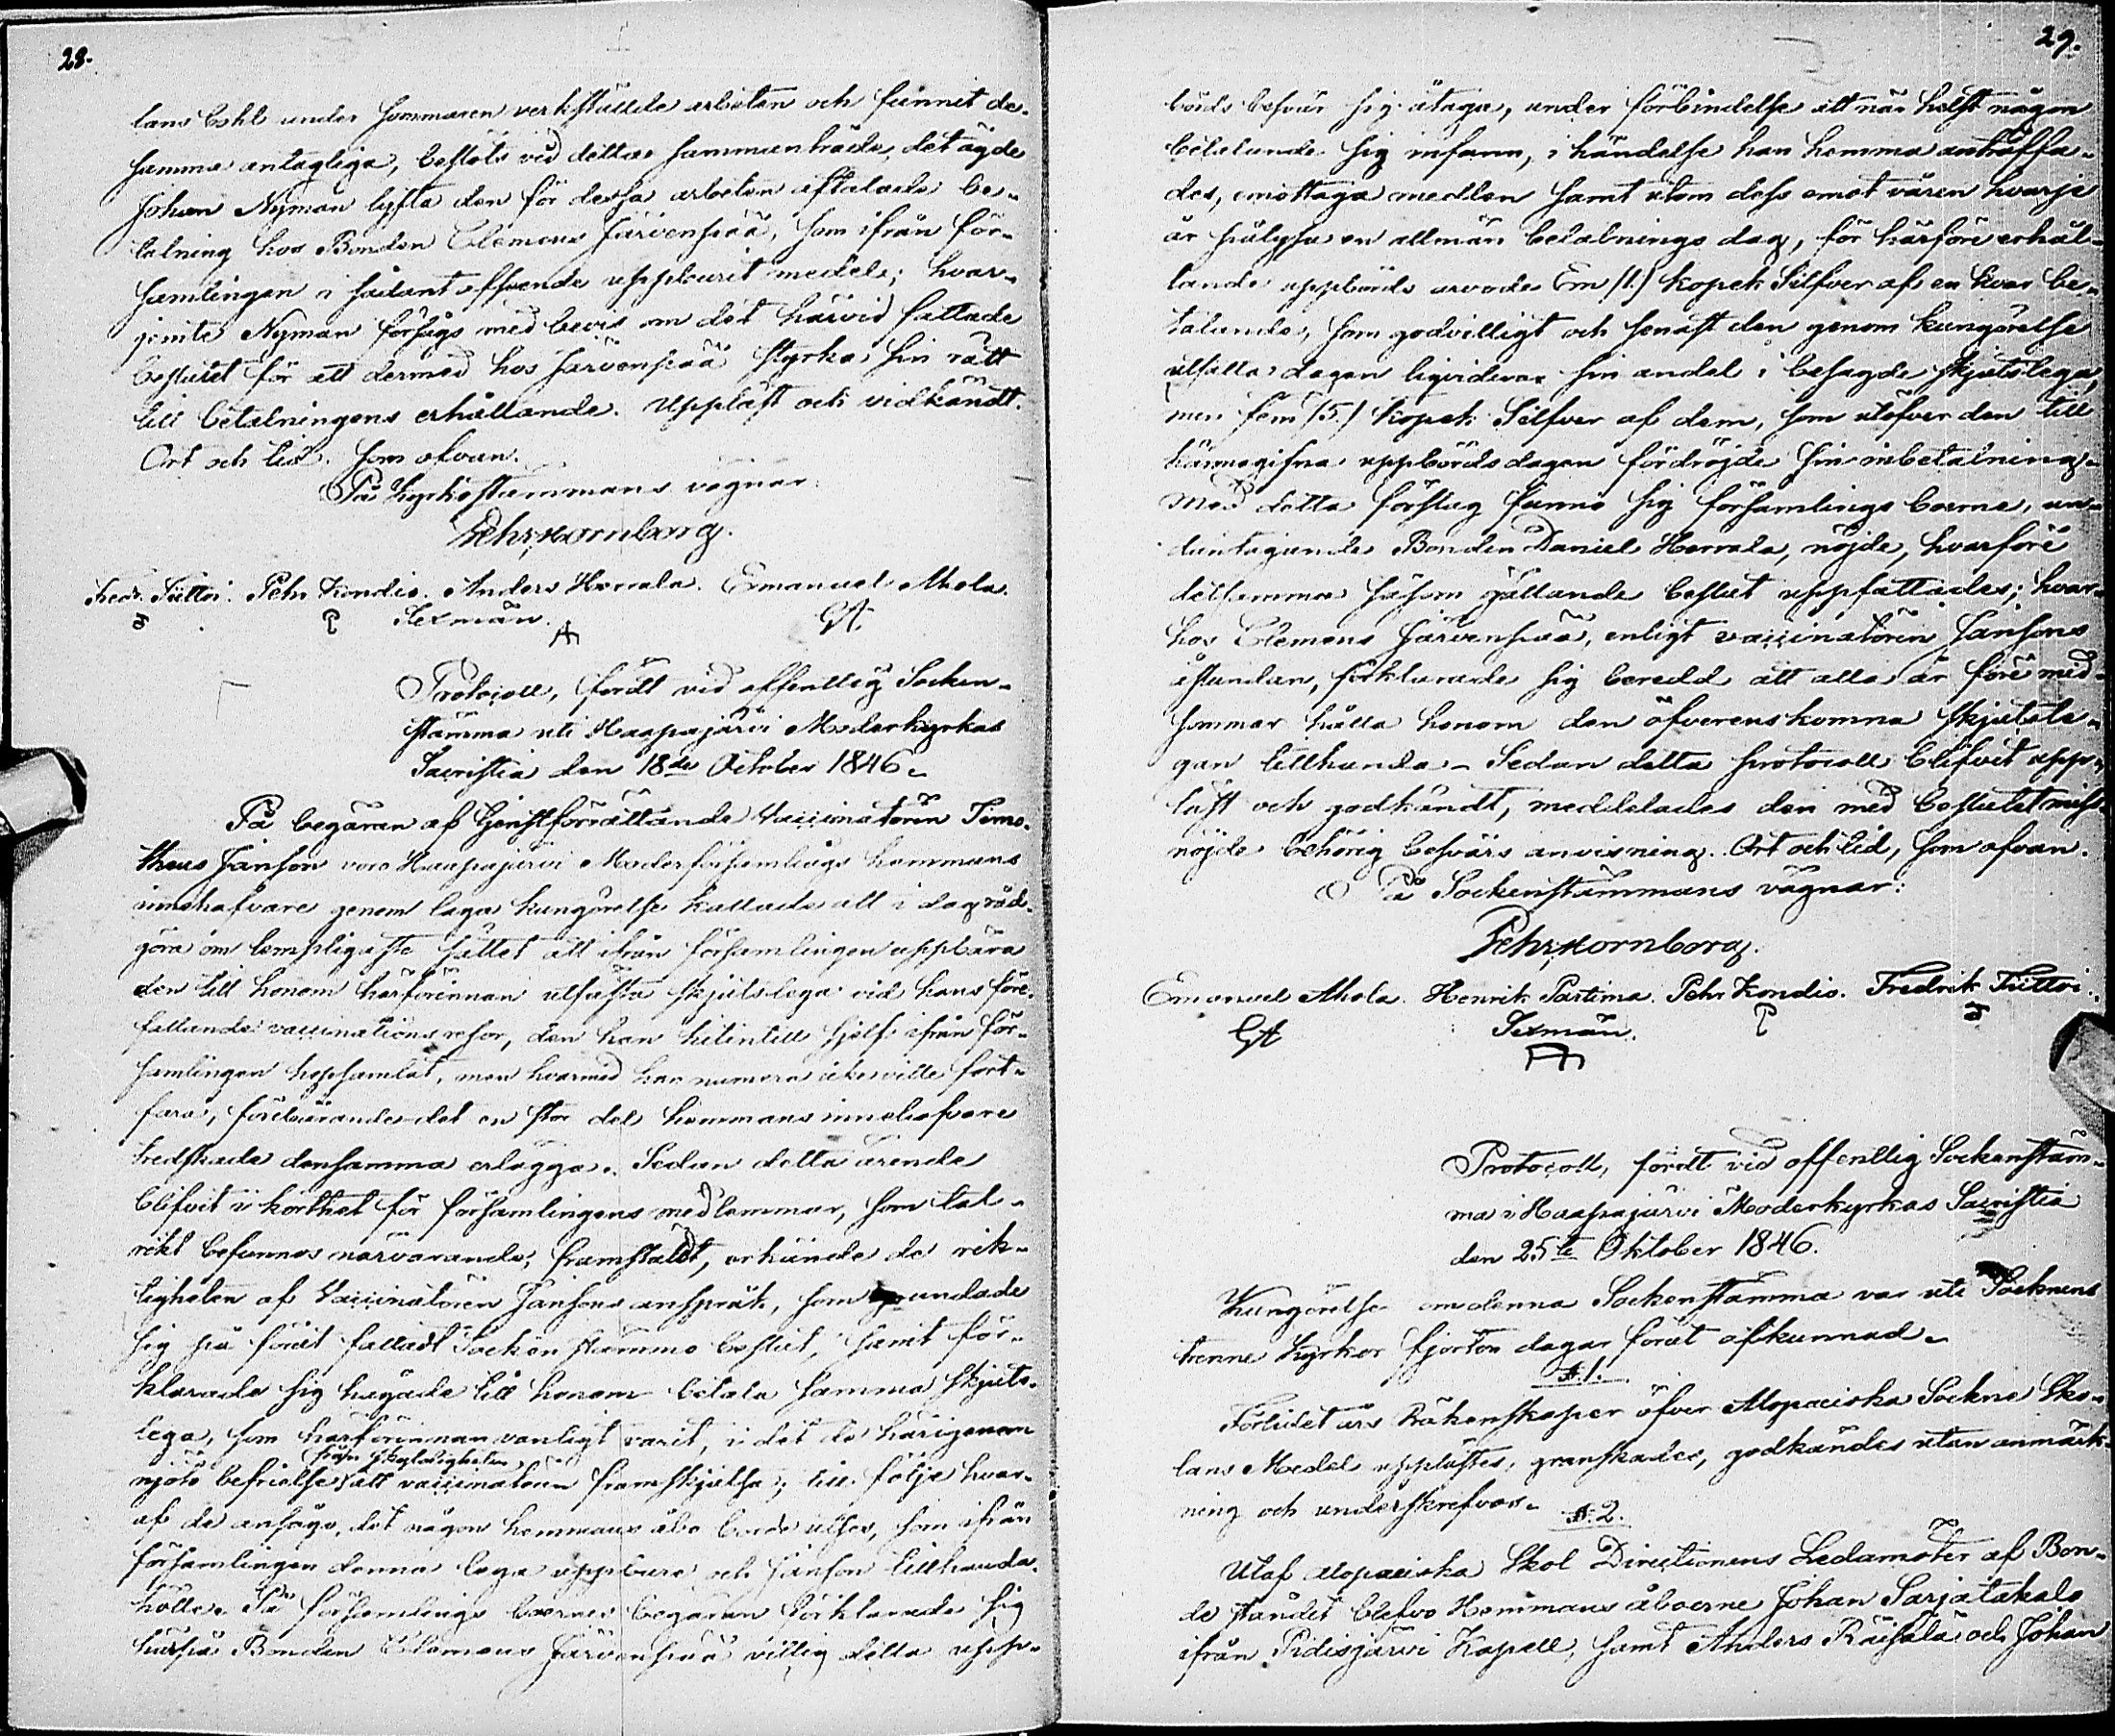 28.
lans Bohl under sommaren verkställde arbeten och funnit de-
samma antagliga, beslöts vid dettas sammanträde, det ägde
Johan Nyman lyfta den för dessa arbeten aftalade be-
talning hos Bonden Clemens Järvenpää, som ifrån för-
samlingen i sådant afseende uppburit medel; hvar-
jemte Nyman försågs med bevis om det härvid fattade
beslutet för att dermed hos Järvenpää styrka sin rätt
till betalningens erhållande. Uppläst och vidkändt.
Ort och tid som ofvan.
På Kyrkostämmans vägnar:
Pehr Kornborg.
Fredr. Tuttoi. Pehr Kondio. Anders Harrala. Emanuel Ahola.
Sexmän.
Protocoll, fördt vid offentlig Socken-
stämma uti Haapajärvi Moderkyrkas
Sacristia den 18de October 1846.
På begäran af Tjenstförrättande Vaccinatören Timo-
theus Janson voro Haapajärvi Moderförsamlings hemmans
innehafvare genom laga kungörelse kallade att i dag råd-
göra om lämpligaste sättet att ifrån församlingen uppbära
den till honom härförinnan utfästa skjutslega vid hans före-
fallande vaccinations resor, den han hitintill sjelf ifrån för-
samlingen hopsamlat, men hvarmed han numera icke ville fort-
fara, förebärande det en stor del hemmans innehafvare
tredskade densamma erlägga. Sedan detta ärende
blifvit i korthet för församlingens medlemmar, som tal-
rikt befunnos närvarande, framstäldt, erkände de rik-
tigheten af Vaccinatören Jansons anspråk, som grundade
sig på förut fattadt Sockenstämmo beslut, samt för-
klarade sig hugade till honom betala samma skjuts-
lega, som härförinnan vanligt varit, i det de härigenom
från skyldigheten
njöto befrielse att vaccinatoren framskjutsa; till följe hvar-
af de ansågo, det någon hemmans åbo borde utses, som ifrån
församlingen denna lega uppbure och Janson tillhanda-
hölle. På församlings boernes begäran förklarade sig
härpå Bonden Clemens Järvenpää villig detta upp-
29.
börds besvär sig åtaga, under förbindelse att när helst någon
betalande sig infann, i händelse han hemma anträffa-
des, emottaga medlen samt utom dess emot våren hvarje
år pålysa en allmän betalnings dag, för härföre erhål-
lande uppbörds arvode Em /1./ kopek Silfver af en hvar be-
talande, som godvilligt och senast den genom kungörelse
utsatta dagen liqviderar sin andel i besagde skjutslega,
men fem /5./ kopek Silfver af dem, som utöfver den till-
kännagifna uppbördsdagen fördröjde sin inbetalning.
Med detta förslag funno sig församlings boerne, un-
dantagande Bonden Daniel Harrala, nöjde, hvarföre
detsamma såsom gällande beslut uppfattades; hvar-
hos Clemens Järvenpää, enligt vaccinatören Jansons
åstundan, förklarade sig beredd att alla år före mid-
sommar hålla honom den öfverenskomna skjutsle-
gan tillhanda. Sedan detta protocoll blifvit upp-
läst och godkändt, meddelades den med beslutet miss-
nöjde behörig besvärs anvisning. Ort och tid, som ofvan.
På Sockenstämmans vägnar:
Pehr Kornborg.
Emanuel Ahola. Henrik Partima. Pehr Kondio. Fredrik Tuttoi.
Sexmän.
Protocoll, fördt vid offentlig Sockenstäm-
ma i Haapajärvi Moderkyrkas Sacristia
den 25te Oktober 1846.
Kungörelse om denna Sockenstämma var uti Socknens
trenne Kyrkor fjorton dagar förut afkunnad.
§.1.
Förlidet års Räkenskaper öfver Alopaeiska Sockne Sko-
lans Medel upplästes, granskades, godkändes utan anmärk-
ning och underskrefvos.
§.2.
Utaf Alopaeiska Skol Directionens Ledamöter af Bon-
de ståndet blefvo Hemmans åboerne Johan Sarjatakalo
ifrån Pidisjärvi Kapell, samt Anders Räihälä och Johan